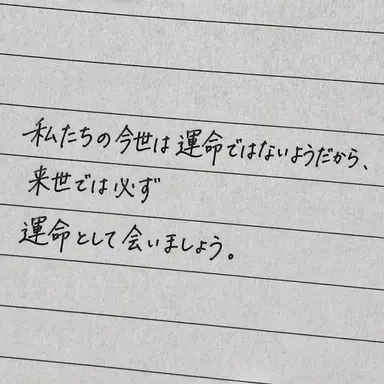 私たちの今世は運命ではないようだから、
来世では必ず
運命として会いましょう。